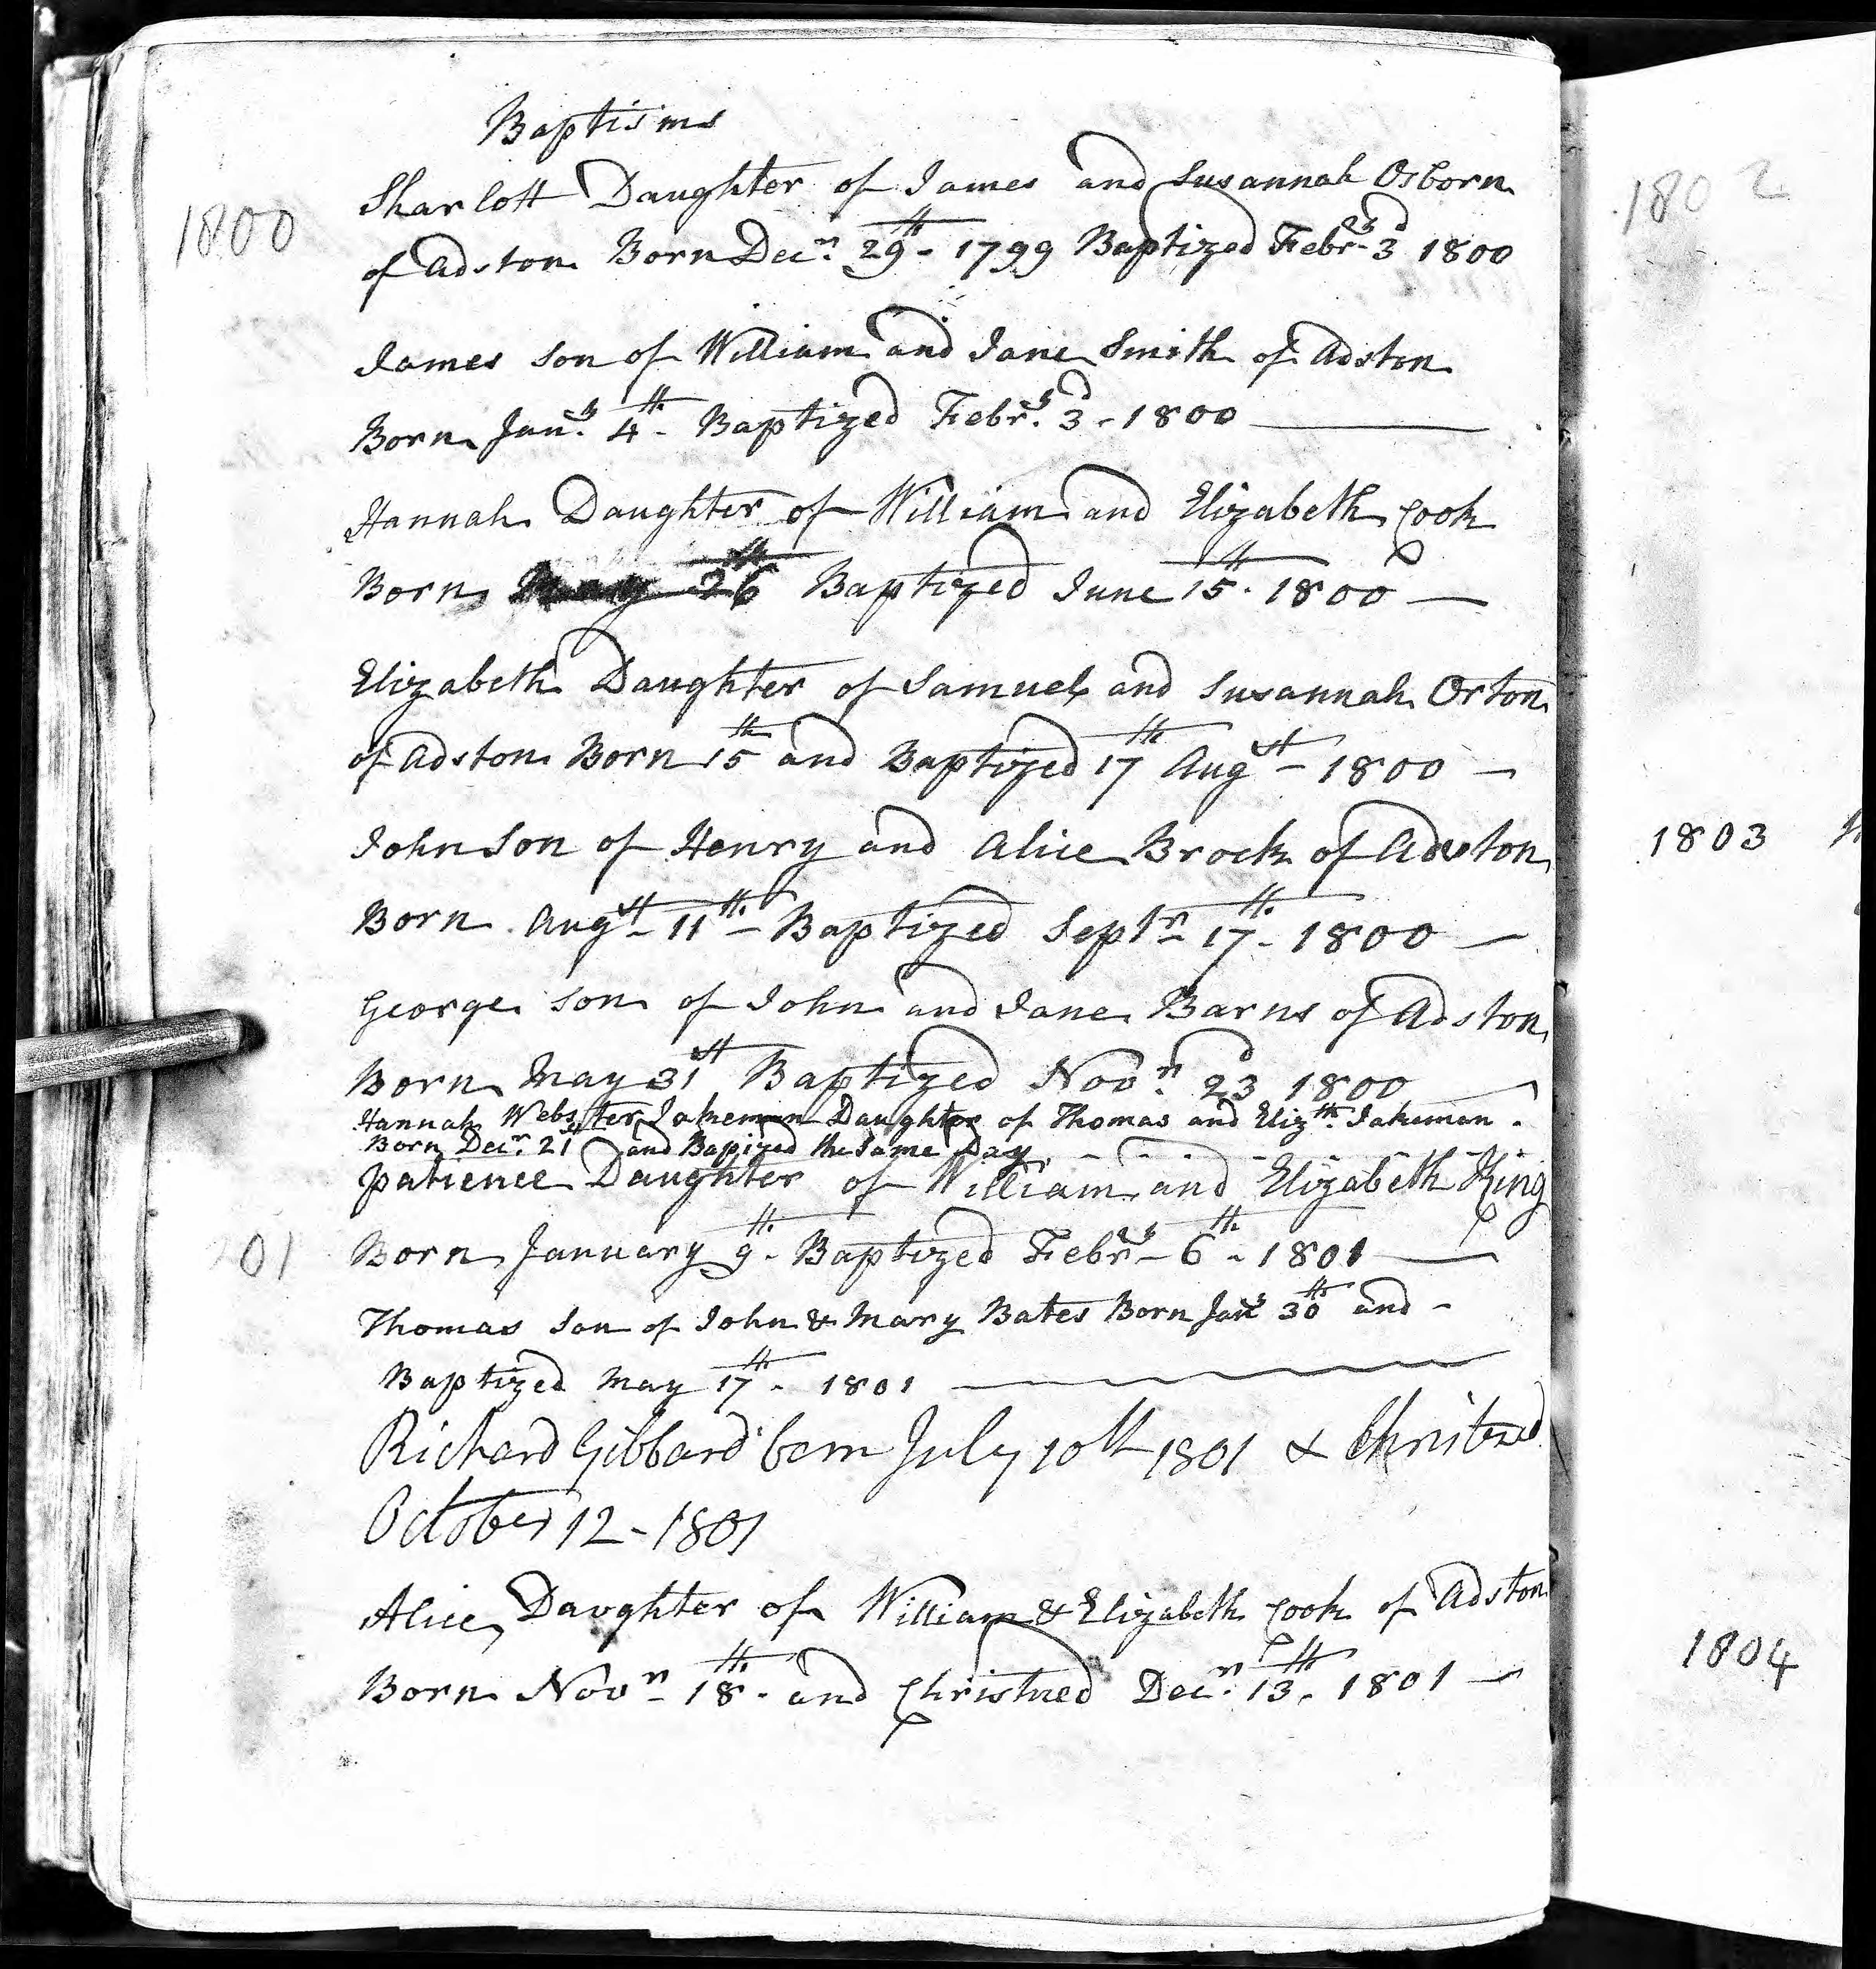 Baptisms
1800
Sharlott Daughter of James and Susannah Osborn
of Adston Born Decr. 29th - 1799 Baptized Febry 3d 1800
James Son of William and Jane Smith of Adston
Born Jany. 4th - Baptized Febry. 3d - 1800
Hannah Daughter of William and Elizabeth Cook
Born May 26th Baptized June 15th - 1800
Elizabeth Daughter of Samuel and Susannah Orton
of Adston Born 15th and Baptized 17th Augst - 1800
John Son of Henry and Alice Brock of Adston
Born Augst - 11th - Baptized Septr - 17th - 1800
George Son of John and Jane Barns of Adston
Born May 31st Baptized Novr. 23d 1800
Hannah Webster Jakeman Daughter of Thomas and Elizth. Jakeman.
Born Decr. 21st and Bapized the Same Day
Patience Daughter of William and Elizabeth King
01
Born January 9th - Baptized Febry - 6th - 1801
Thomas Son of John & Mary Bates Born Jany 30th and -
Baptized May 17th - 1801
Richard Gibbard born July 10th 1801 & Christned
October 12 - 1801
Alice Daughter of William & Elizabeth Cook of Adston
Born Novr - 18th - and Christned Decr. 13th - 1801
1802
1803
1804